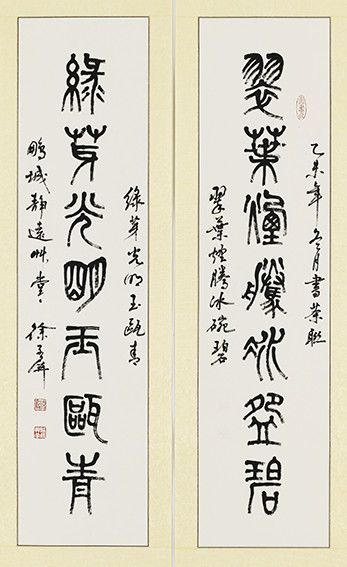 乙未年冬月書茶聯
翠葉煙騰冰盌碧
翠葉煙騰冰碗碧
綠芽光明玉甌青
綠芽光明玉甌青
鵬城靜遠艸堂 徐